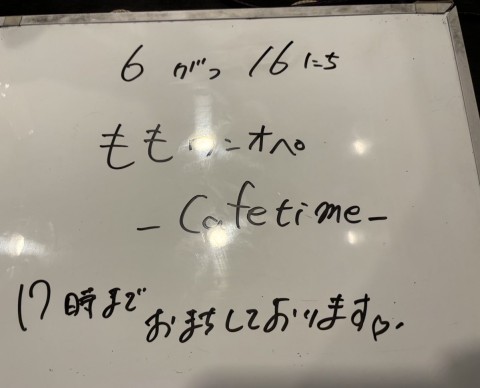 6がつ16にち
ももワンオペ
- Cafetime -
17時まで
おまちしております♡.